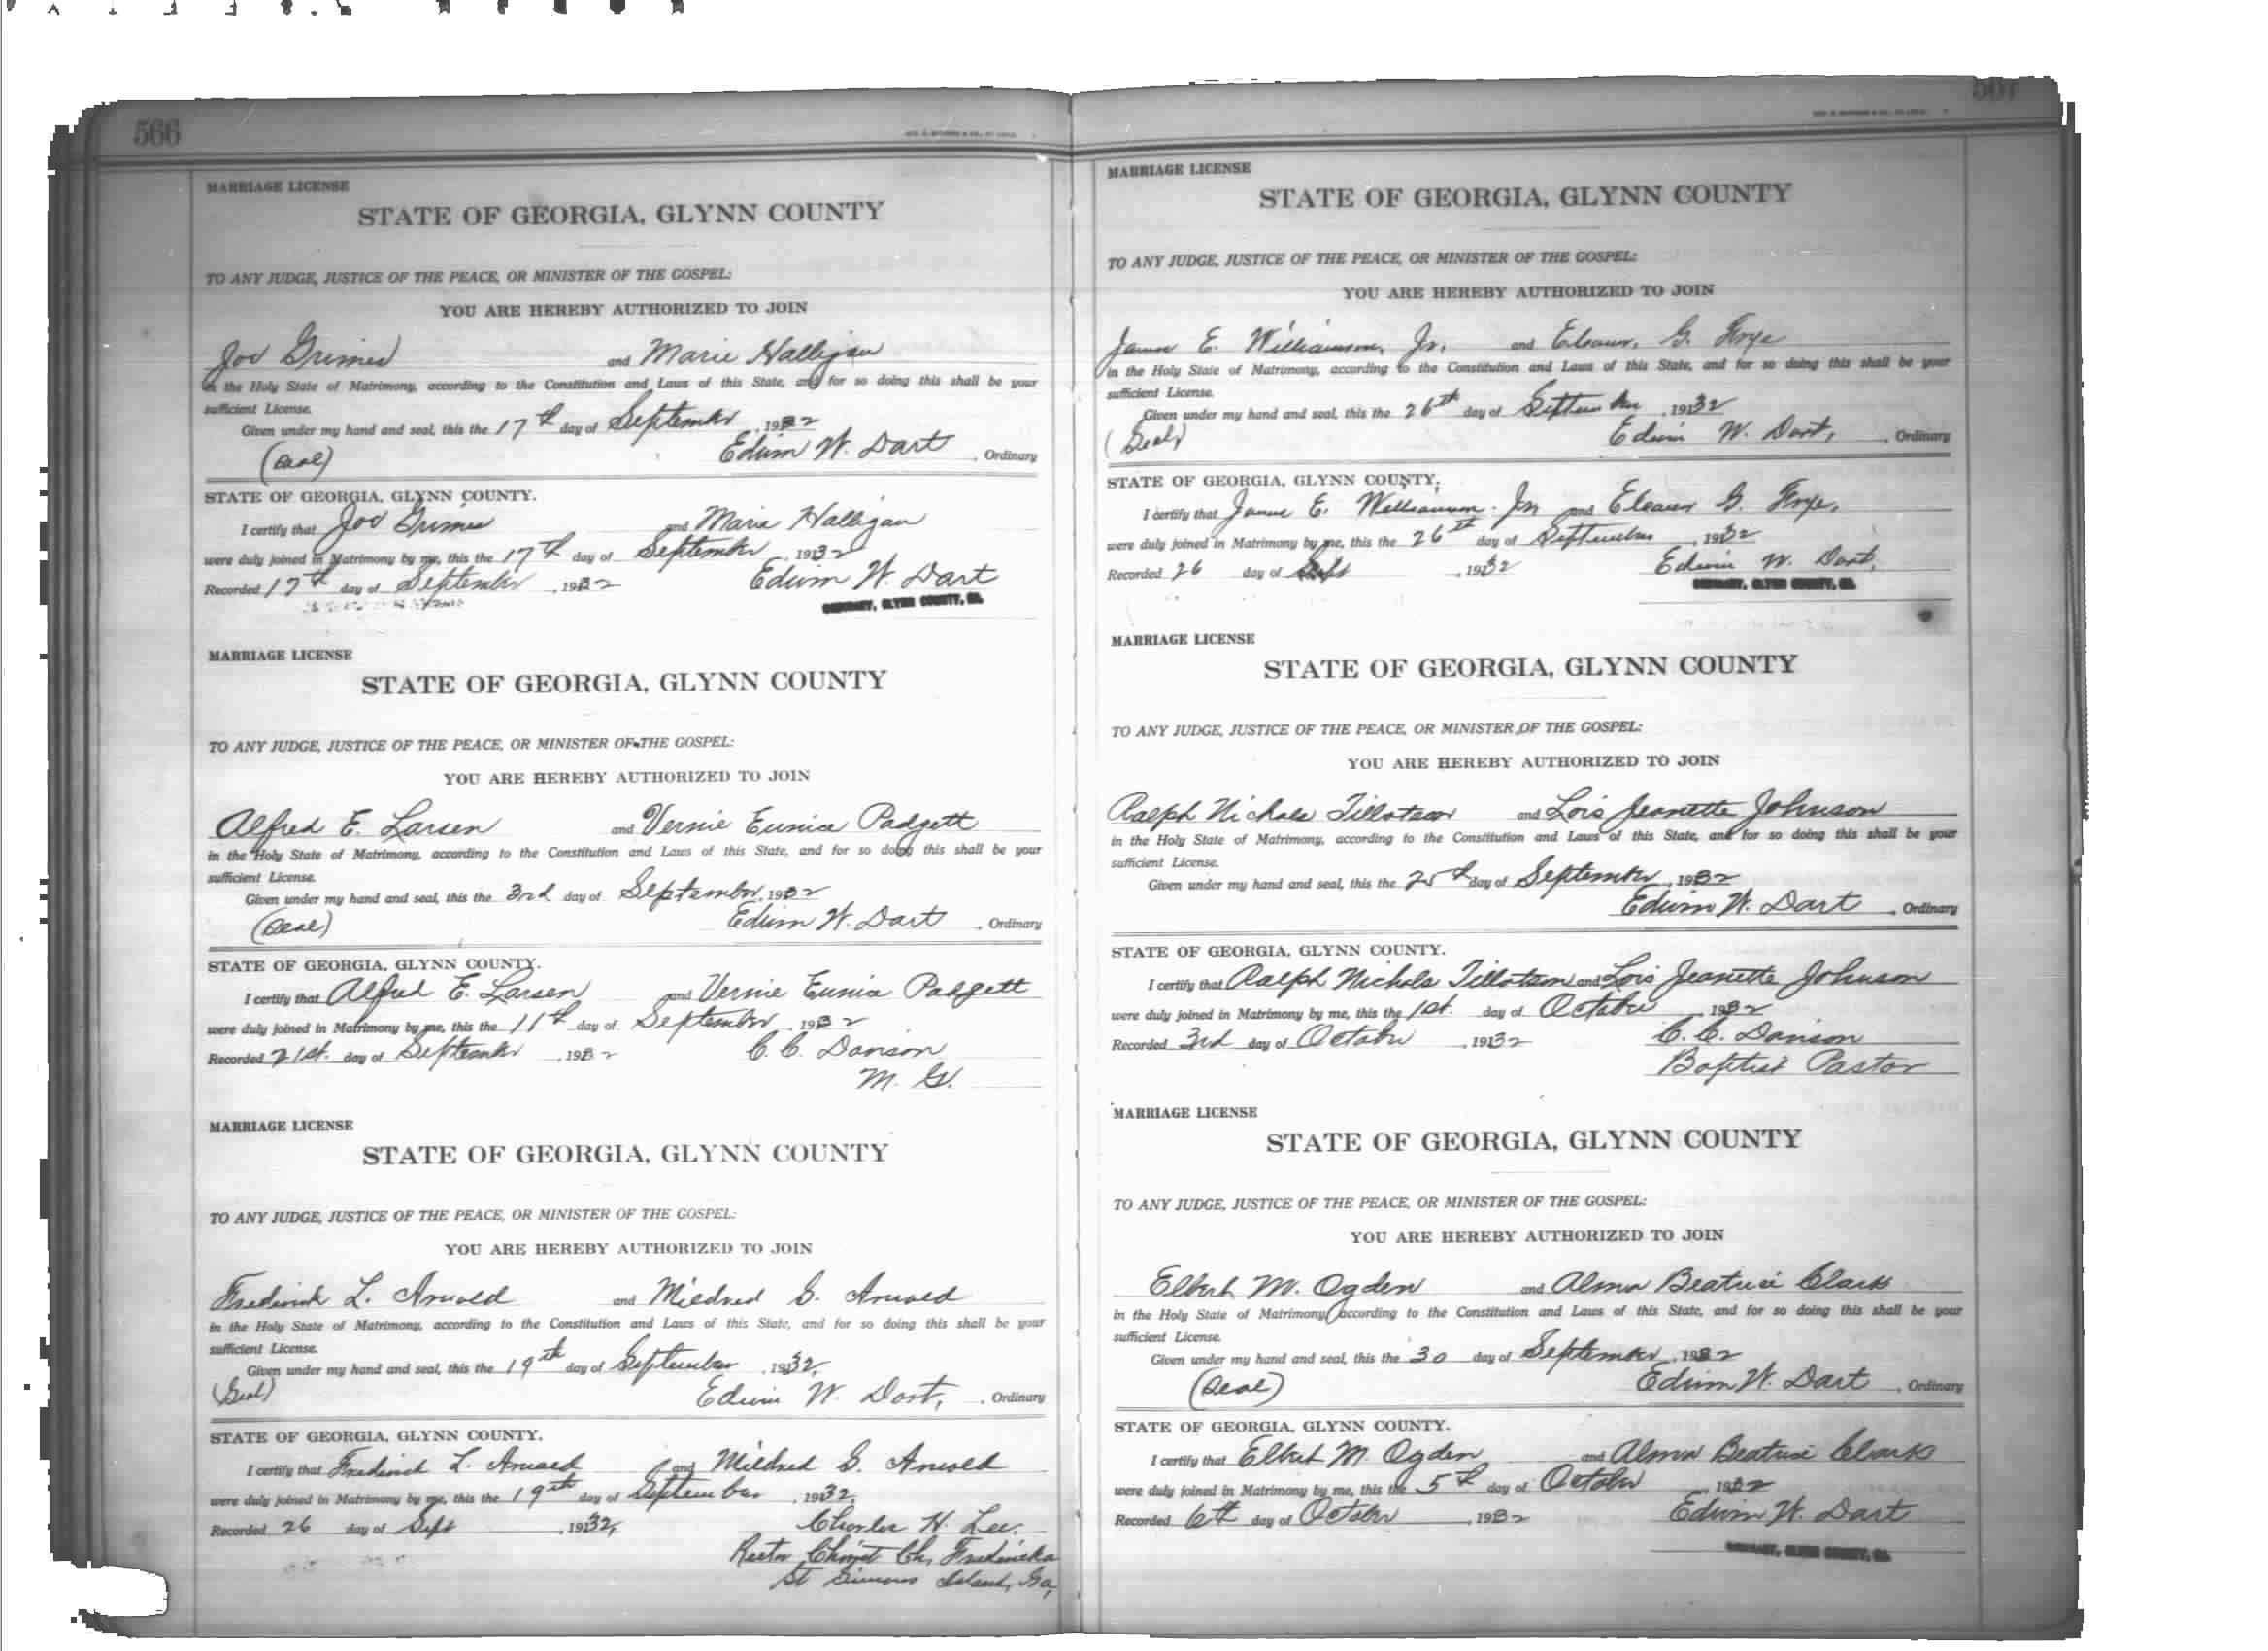 566
MARRIAGE LICENSE
STATE OF GEORGIA, GLYNN COUNTY
TO ANY JUDGE, JUSTICE OF THE PEACE, OR MINISTER OF THE GOSPEL:
YOU ARE HEREBY AUTHORIZED TO JOIN
Joe Grimes and Marie Halligan
in the Holy State of Matrimony, according to the Constitution and Laws of this State, and for so doing this shall be your
sufficient License.
Given under my hand and seal, this the 17th day of September, 1932
(Seal) Edwin W. Dart, Ordinary
STATE OF GEORGIA, GLYNN COUNTY.
I certify that Joe Grimes and Marie Halligan
were duly joined in Matrimony by me, this the 17th day of September, 1932
Recorded 17th day of September, 1932 Edwin W. Dart
ORDINARY, GLYNN COUNTY, GA.
MARRIAGE LICENSE
STATE OF GEORGIA, GLYNN COUNTY
TO ANY JUDGE, JUSTICE OF THE PEACE, OR MINISTER OF THE GOSPEL:
YOU ARE HEREBY AUTHORIZED TO JOIN
Alfred E. Larsen and Vernie Eunice Padgett
in the Holy State of Matrimony, according to the Constitution and Laws of this State, and for so doing this shall be your
sufficient License.
Given under my hand and seal, this the 3rd day of September, 1932
(Seal) Edwin W. Dart, Ordinary
STATE OF GEORGIA, GLYNN COUNTY.
I certify that Alfred E. Larsen and Vernie Eunice Padgett
were duly joined in Matrimony by me, this the 11th day of September, 1932
Recorded 21st. day of September, 1932 C. C. Davison
M. G.
MARRIAGE LICENSE
STATE OF GEORGIA, GLYNN COUNTY
TO ANY JUDGE, JUSTICE OF THE PEACE, OR MINISTER OF THE GOSPEL:
YOU ARE HEREBY AUTHORIZED TO JOIN
Frederick L. Arnold and Mildred G. Arnold
in the Holy State of Matrimony, according to the Constitution and Laws of this State, and for so doing this shall be your
sufficient License.
Given under my hand and seal, this the 19th day of September, 1932,
(Seal) Edwin W. Dart, Ordinary
STATE OF GEORGIA, GLYNN COUNTY.
I certify that Frederick L. Arnold and Mildred G. Arnold
were duly joined in Matrimony by me, this the 19th day of September, 1932,
Recorded 26 day of Sept, 1932, Charles H. Lee.
Rector Christ Ch, Frederica
St Simons Island, Ga,
567
MARRIAGE LICENSE
STATE OF GEORGIA, GLYNN COUNTY
TO ANY JUDGE, JUSTICE OF THE PEACE, OR MINISTER OF THE GOSPEL:
YOU ARE HEREBY AUTHORIZED TO JOIN
James E. Williamson, Jr. and Eleanor G. Frye
in the Holy State of Matrimony, according to the Constitution and Laws of this State, and for so doing this shall be your
sufficient License.
Given under my hand and seal, this the 26th day of September, 1932
(Seal) Edwin W. Dart, Ordinary
STATE OF GEORGIA, GLYNN COUNTY.
I certify that James E. Williamson Jr and Eleanor G. Frye,
were duly joined in Matrimony by me, this the 26th day of September, 1932
Recorded 26 day of Sept, 1932 Edwin W. Dart,
ORDINARY, GLYNN COUNTY, GA.
MARRIAGE LICENSE
STATE OF GEORGIA, GLYNN COUNTY
TO ANY JUDGE, JUSTICE OF THE PEACE, OR MINISTER OF THE GOSPEL:
YOU ARE HEREBY AUTHORIZED TO JOIN
Ralph Nichols Tillotson and Lois Jeanette Johnson
in the Holy State of Matrimony, according to the Constitution and Laws of this State, and for so doing this shall be your
sufficient License.
Given under my hand and seal, this the 25th day of September, 1932
Edwin W. Dart, Ordinary
STATE OF GEORGIA, GLYNN COUNTY.
I certify that Ralph Nichols Tillotson and Lois Jeanette Johnson
were duly joined in Matrimony by me, this the 1st. day of October, 1932
Recorded 3rd day of October, 1932 C. C. Davison
Baptist Pastor
MARRIAGE LICENSE
STATE OF GEORGIA, GLYNN COUNTY
TO ANY JUDGE, JUSTICE OF THE PEACE, OR MINISTER OF THE GOSPEL:
YOU ARE HEREBY AUTHORIZED TO JOIN
Elbert M. Ogden and Alma Beatrice Clark
in the Holy State of Matrimony, according to the Constitution and Laws of this State, and for so doing this shall be your
sufficient License.
Given under my hand and seal, this the 30 day of September, 1932
(Seal) Edwin W. Dart, Ordinary
STATE OF GEORGIA, GLYNN COUNTY.
I certify that Elbert M. Ogden and Alma Beatrice Clark
were duly joined in Matrimony by me, this the 5th day of October, 1932
Recorded 6th day of October, 1932 Edwin W. Dart
ORDINARY, GLYNN COUNTY, GA.